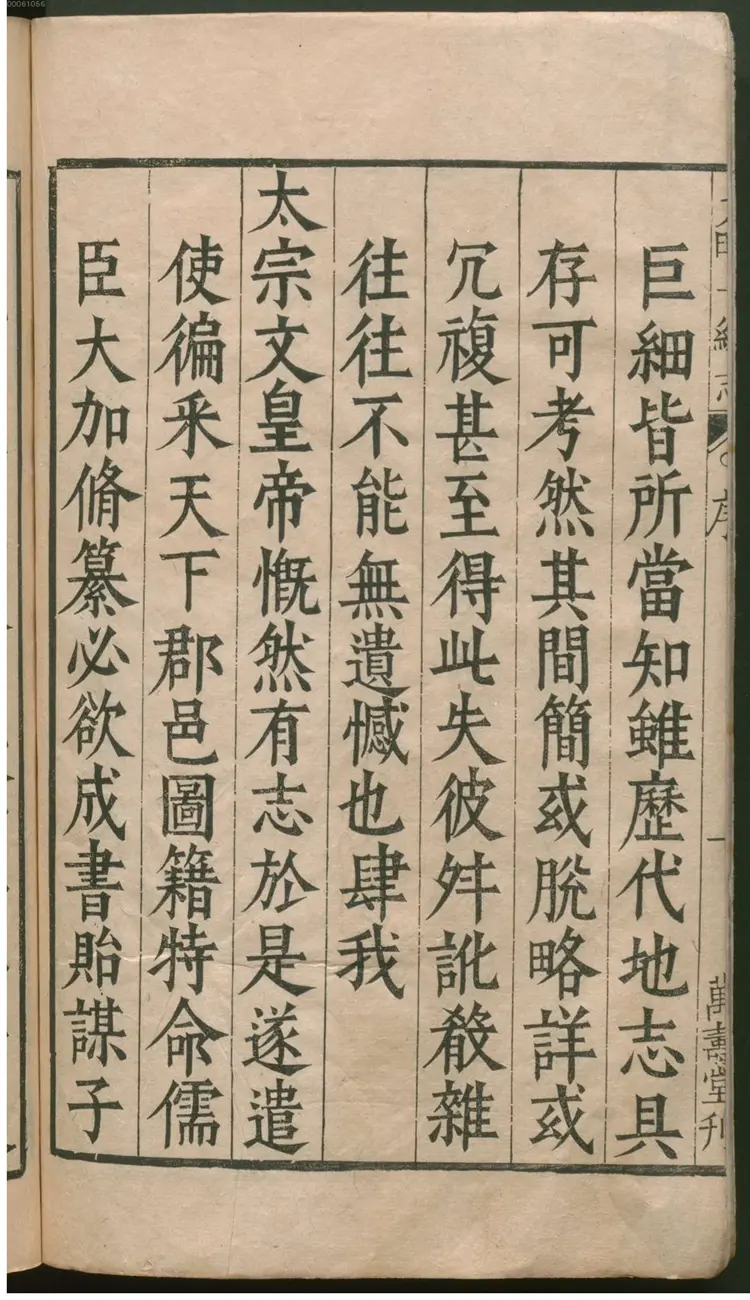 巨細皆所當知雖歷代地志具
存可考然其間簡或脫略詳或
冗複甚至得此失彼舛訛殽雜
往往不能無遺憾也肆我
太宗文皇帝慨然有志於是遂遣
使徧采天下郡邑圖籍特命儒
臣大加脩纂必欲成書貽謀子
一統志
序
一
萬壽堂刊
00061056